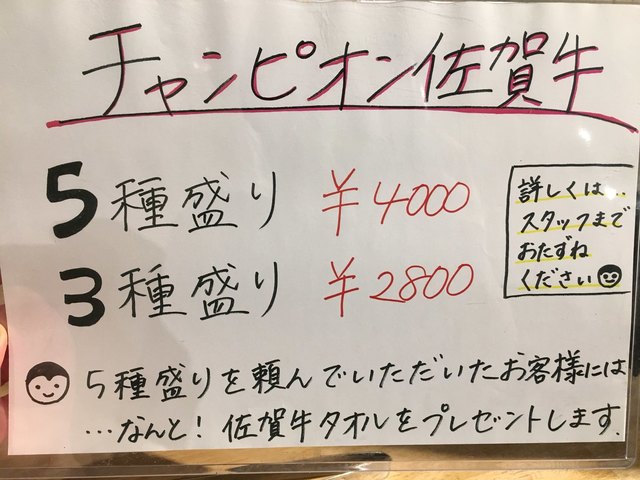 チャンピオン佐賀牛
5種盛り ¥4000
3種盛り ¥2800
詳しくは…
スタッフまで
おたずね
ください
5種盛りを頼んでいただいたお客様には
…なんと！佐賀牛タオルをプレゼントします.